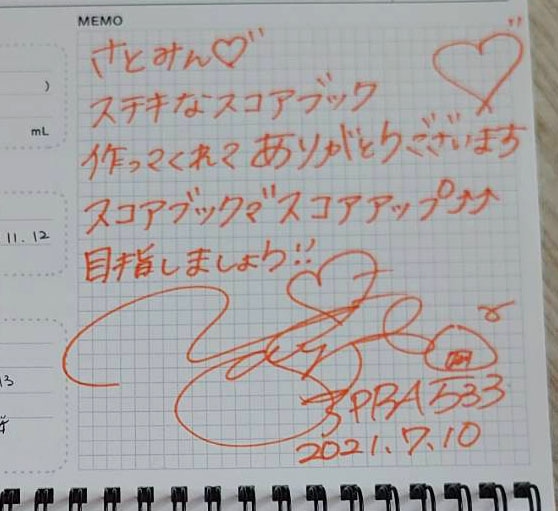 MEMO
さとみん♡
ステキなスコアブック
作ってくれて ありがとうございます
スコアブックでスコアアップ⤴⤴
目指しましょう!!
JPBA533
2021.7.10
)
mL
11.12